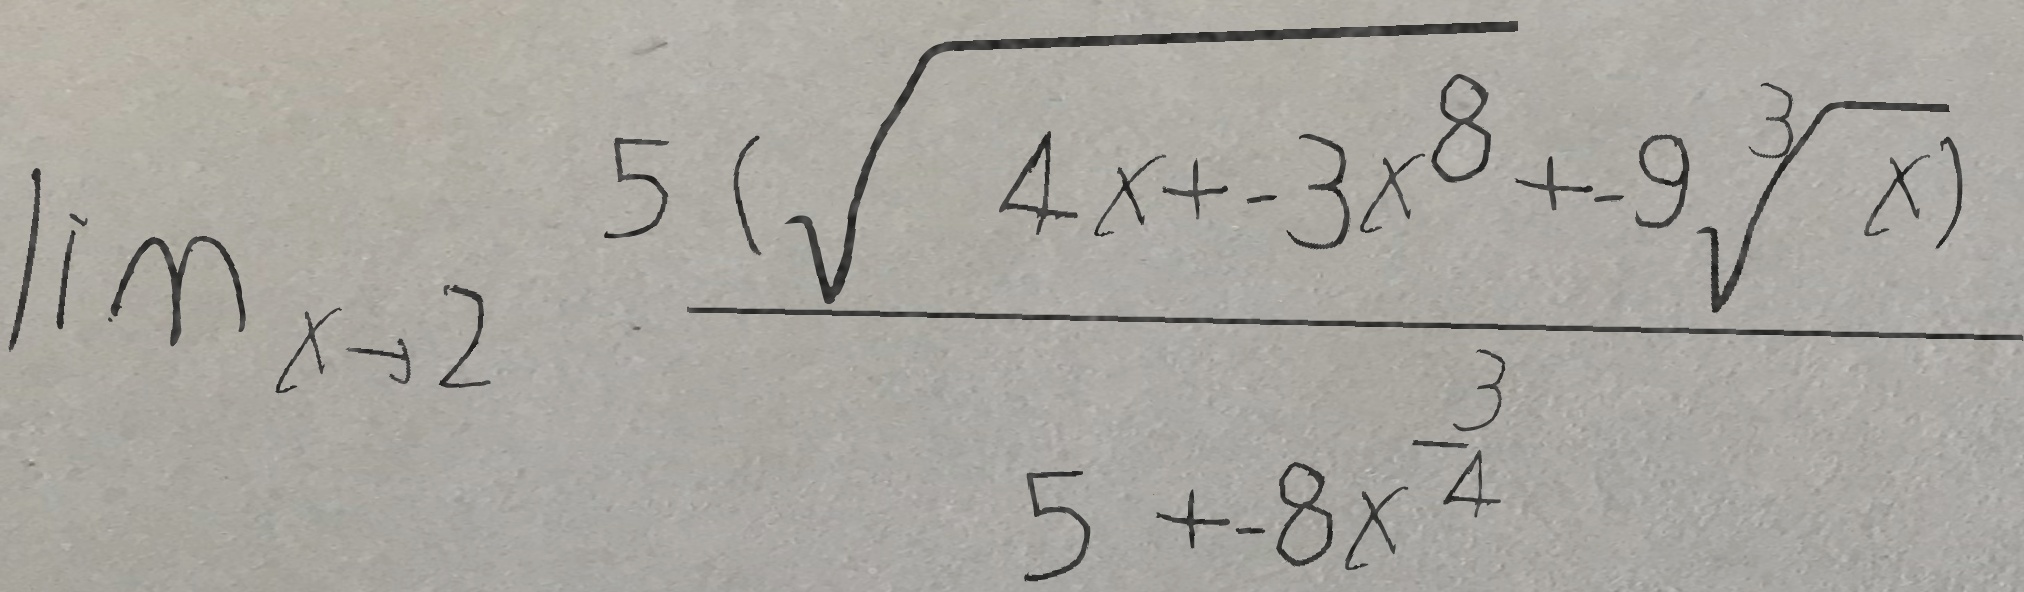 \lim_{x \to 2} \frac{5(\sqrt{4x+-3x^8}+-9\sqrt[3]{x})}{5+-8x^{\frac{3}{4}}}